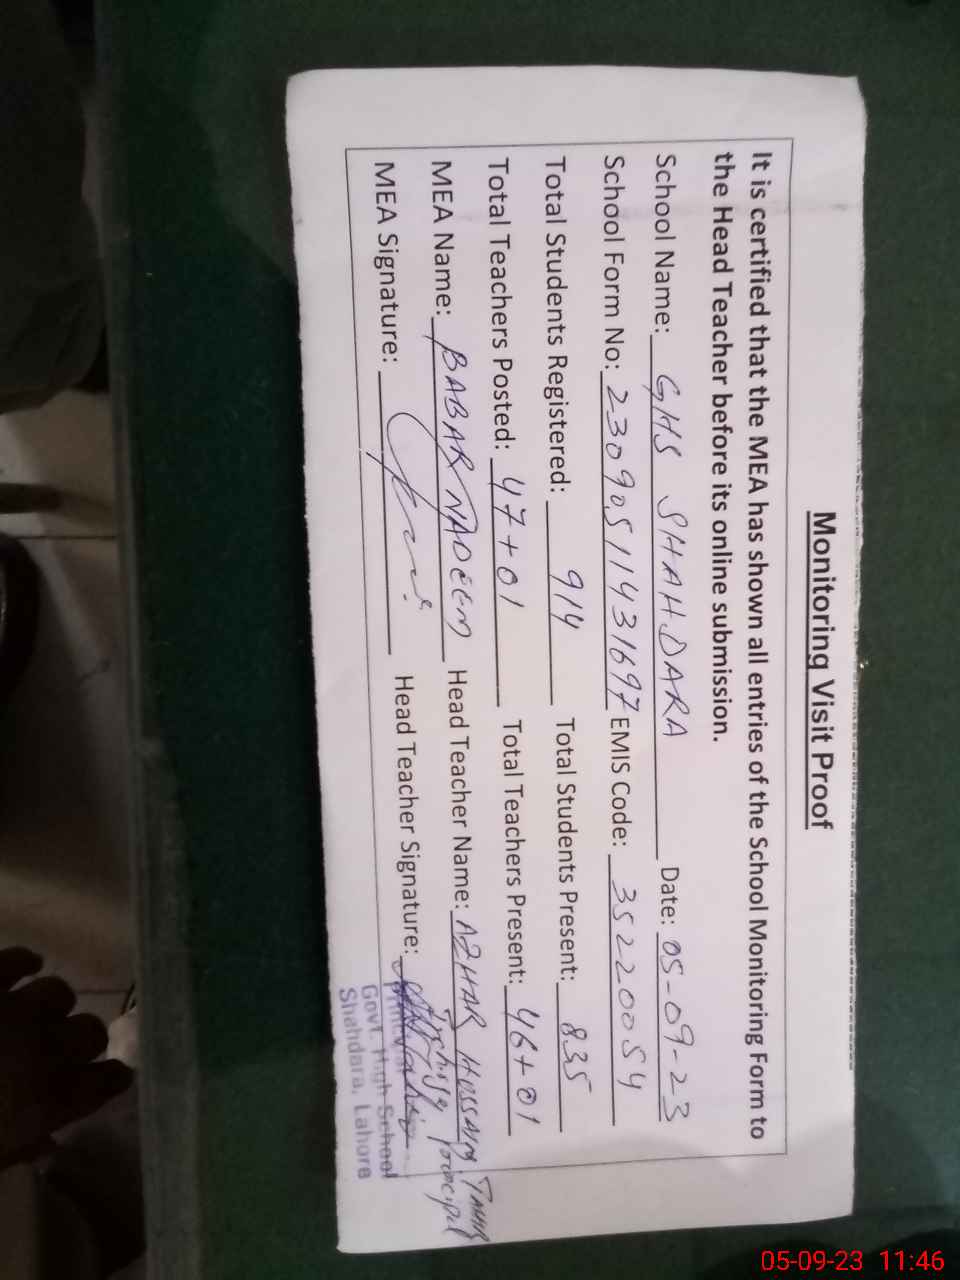 Monitoring Visit Proof
It is certified that the MEA has shown all entries of the School Monitoring Form to
the Head Teacher before its online submission.
School Name: GHS SHAHDARA Date: 05-09-23
School Form No: 23090511431697 EMIS Code: 35220054
Total Students Registered: 914 Total Students Present: 835
Total Teachers Posted: 47+01 Total Teachers Present: 46+01
MEA Name: BABAR NADEEM Head Teacher Name: AZHAR HUSSAIN TAHIR
Incharge Principal
MEA Signature: Head Teacher Signature:
Principal
Govt. High School
Shahdara, Lahore
05-09-23 11:46